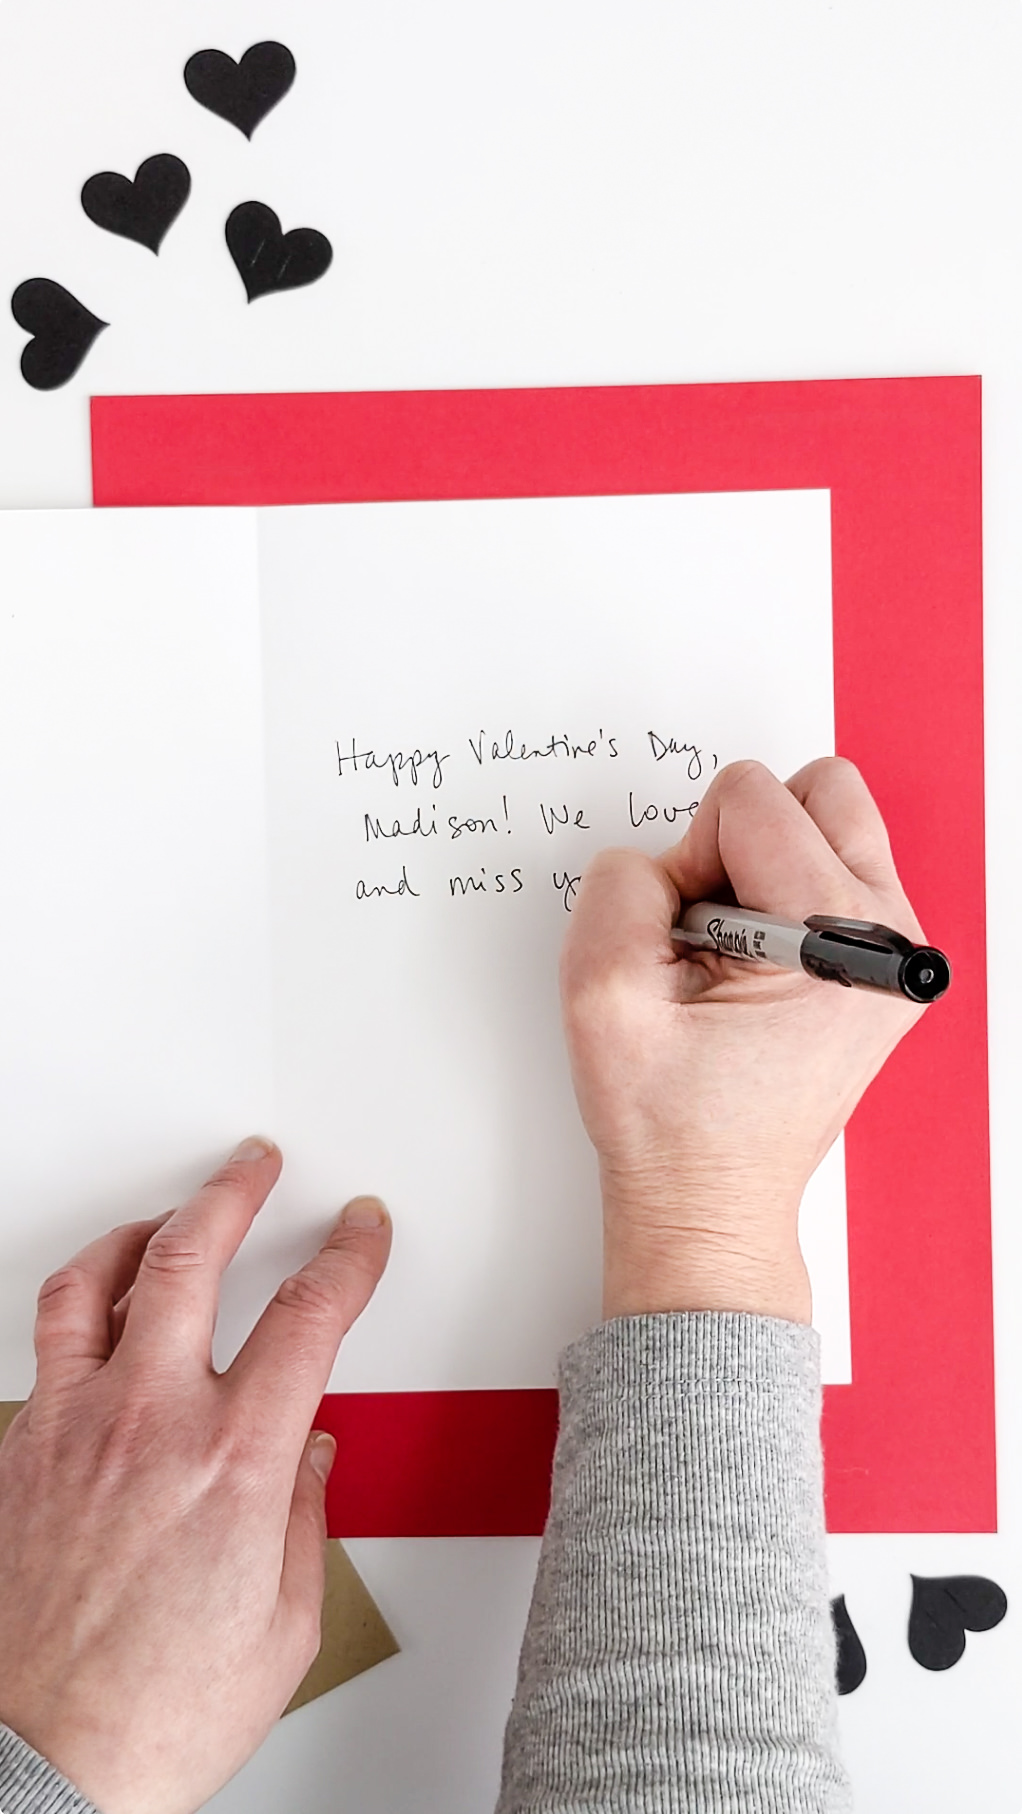 Happy Valentine's Day,
Madison! We love
and miss
Sharpie